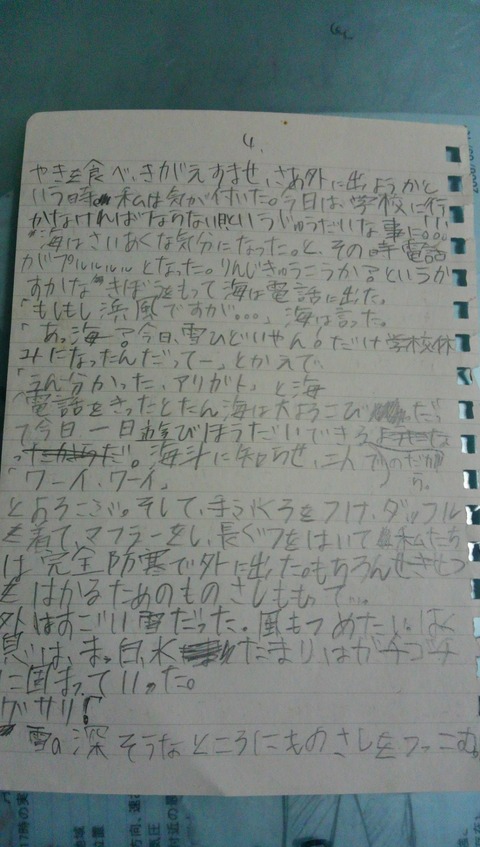 4.
やきを食べ、きがえすませ、さあ外に出ようかと
いう時、私は気が付いた。今日は、学校に行
かなければならない日というじゅうだいな事に!!!
海はさいあくな気分になった。と、その時電話
がプルルルルとなった。りんじきゅうこうか?というか
すかなきぼうをもって海は電話に出た。
「もしもし浜風ですが…」海は言った。
「あっ海?今日、雪ひどいやん!だけ学校休
みになったんだってー」とかえで、
「うん分かった、アリガト」と海
電話をきったとたん海は大よろこび だっ
て今日一日遊びほうだいできる のだか
ら。
。海斗に知らせ、二人で
「ワーイ、ワーイ」
とよろこぶ。そして、手ぶくろをつけ、ダッフル
を着て、マフラーをし、長ぐつをはいて私たち
は完全防寒で外に出た。もちろんせきせつ
をはかるためのものさしももって…。
外はすごい雪だった。風もつめたい。はく
息は、まっ白、水たまりはガチゴチ
に固まっていった。
グサリ!
雪の深そうなところにものさしをつっこむ。